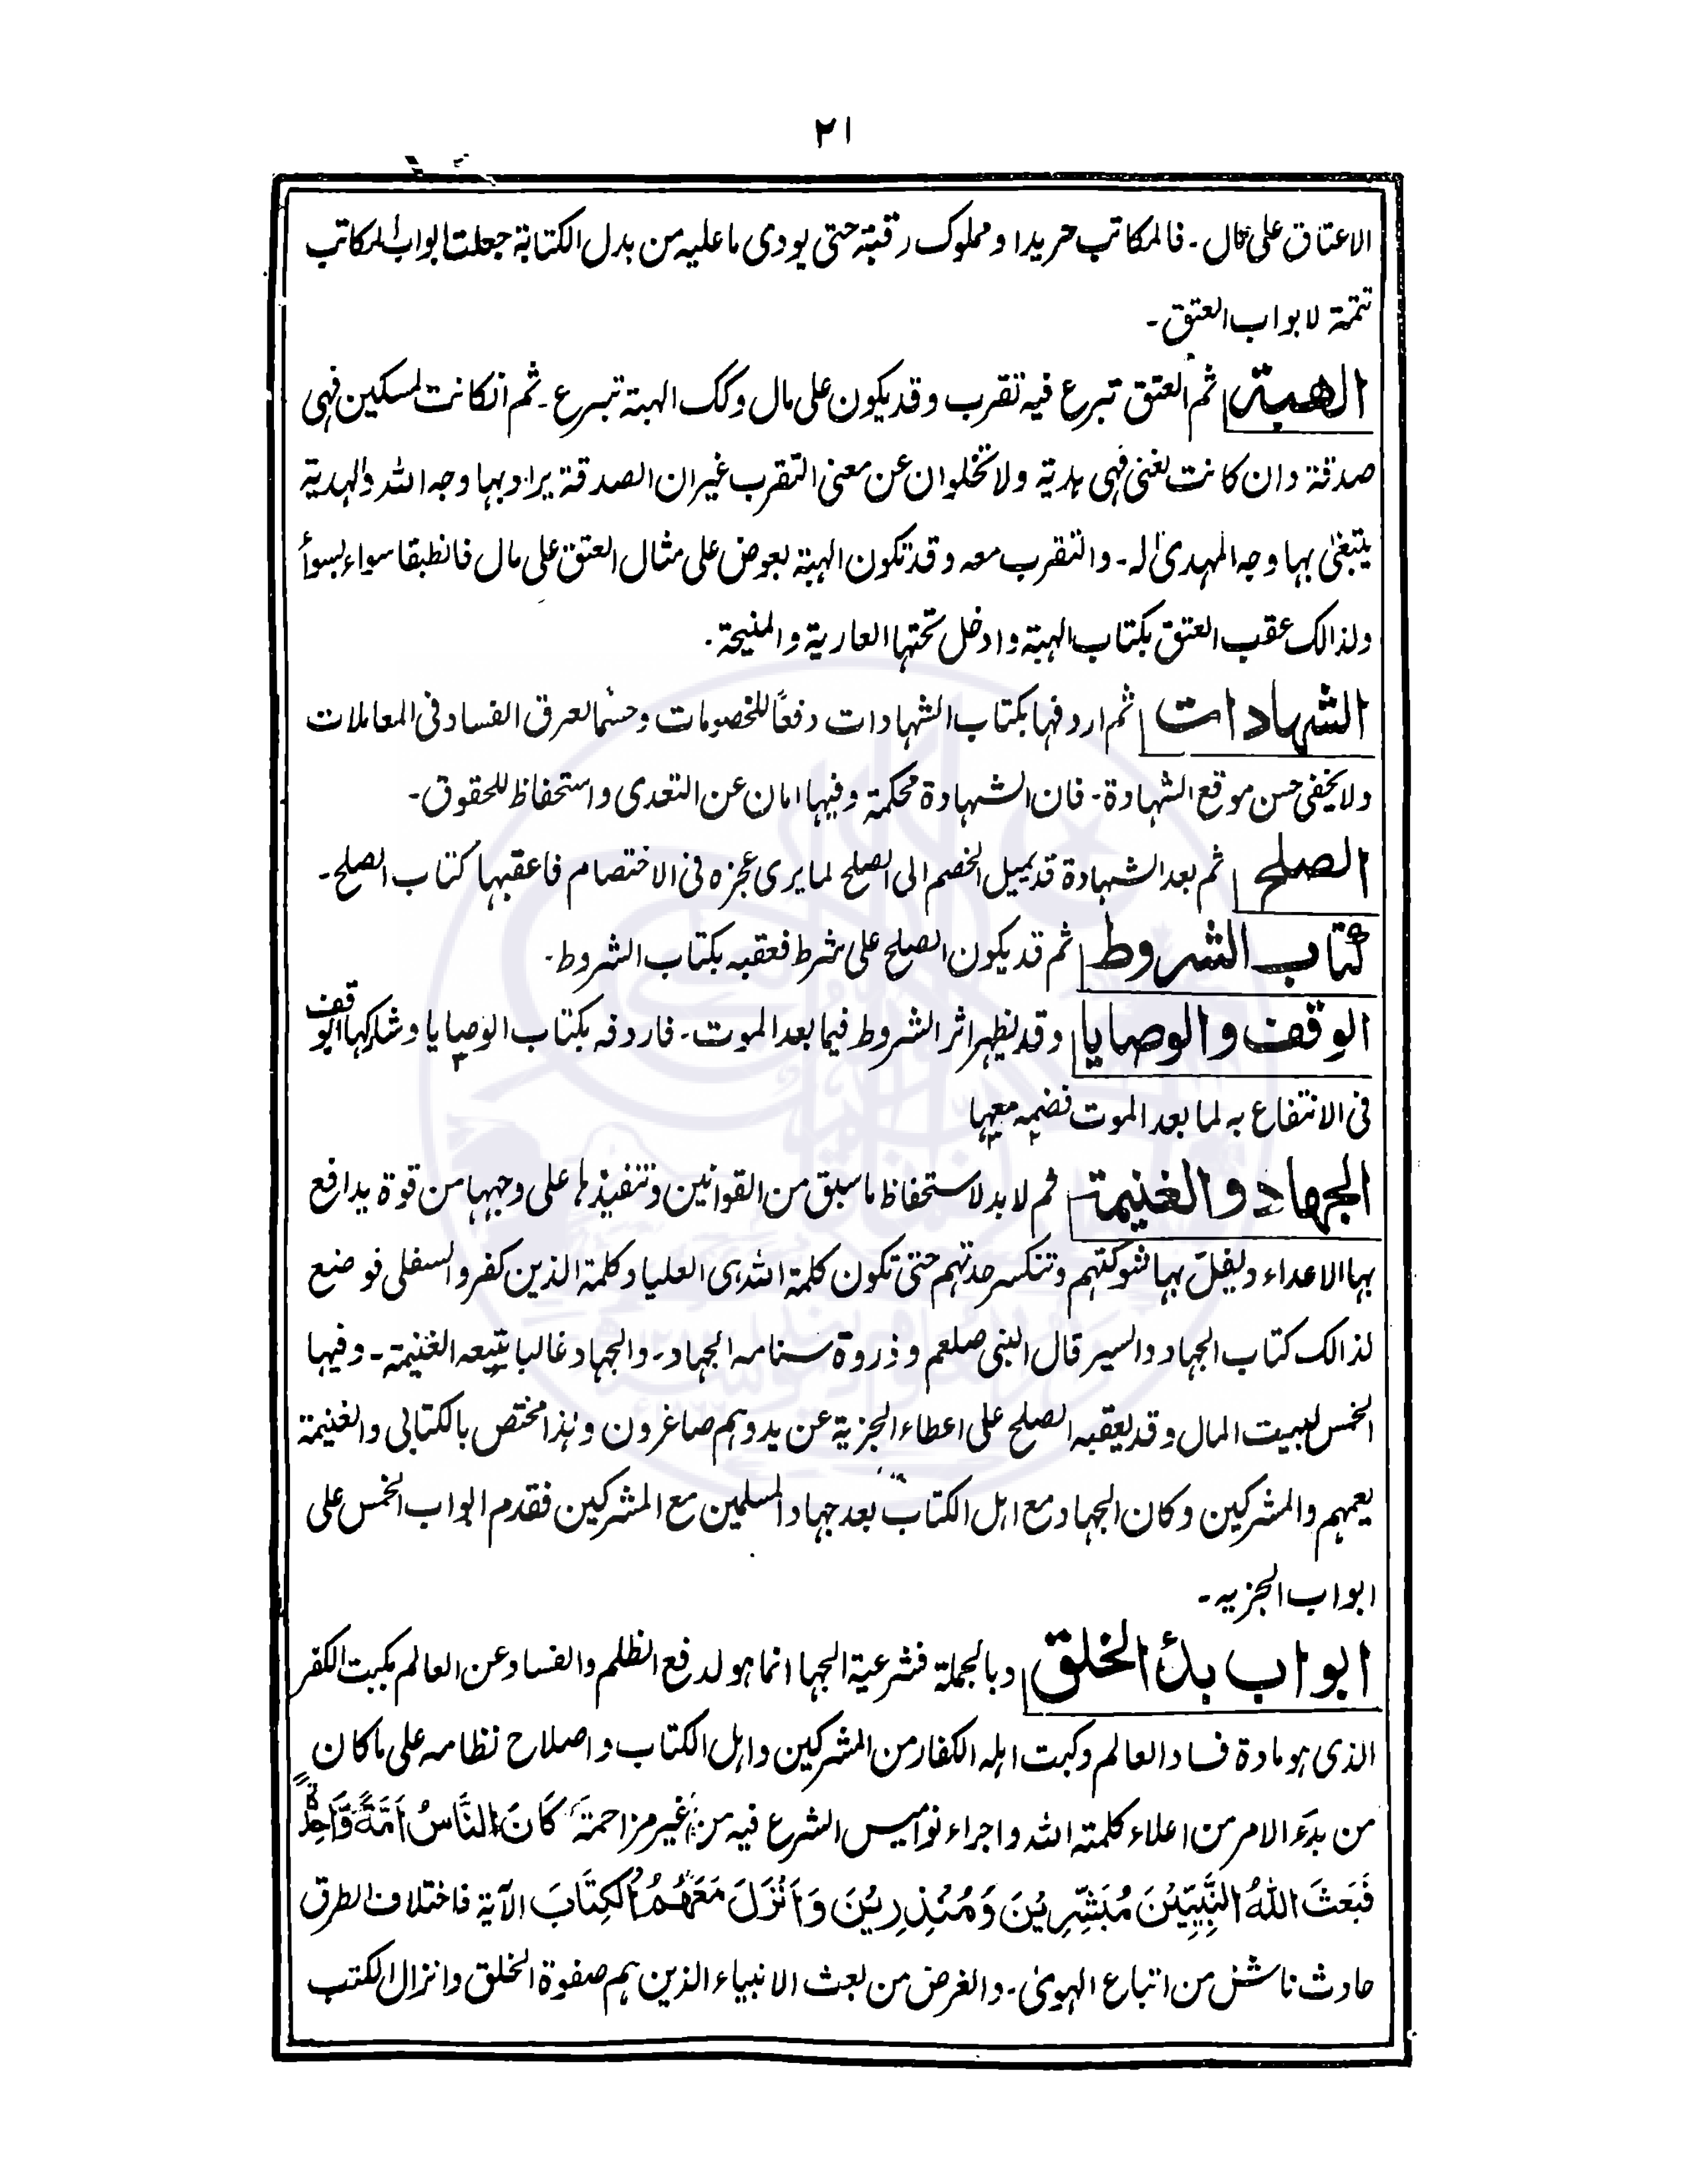 ۲۱
الاعتاق على مال۔ فالمكاتب حر يدا ومملوك رقبة حتى يودى ما عليه من بدل الكتابة جعلت ابواب المكاتب
تتمة لابواب العتق۔
الهبة ثم العتق تبرع فيه تقرب وقد يكون على مال وكك الهبة تبرع۔ ثم انكانت لمسكين فهى
صدقة وان كانت لغنى فهى هدية ولا تخلوان عن معنى التقرب غير ان الصدقة يراد بها وجه الله والهدية
يبتغى بها وجه المهدىٰ له۔ والتقرب معه وقد تكون الهبة بعوض على مثال العتق على مال فانطبقا سواء بسوأ
ولذالك عقب العتق بكتاب الهبة وادخل تحتها العارية والمنيحة۔
الشهادات ثم اردفها بكتاب الشهادات دفعاً للخصومات وحسما لعرق الفساد فى المعاملات
ولا يخفى حسن موقع الشهادة۔ فان الشهادة محكمة وفيها امان عن التعدى واستحفاظ للحقوق۔
الصلح ثم بعد الشهادة قد يميل الخصم الى الصلح لما يرى عجزه فى الاختصام فاعقبها كتاب الصلح۔
كتاب الشروط ثم قد يكون الصلح على شرط فعقبه بكتاب الشروط۔
الوقف والوصايا وقد يظهر اثر الشروط فيما بعد الموت۔ فاردفه بكتاب الوصايا وشاركها الوقف
فى الانتفاع به لما بعد الموت فضمه معها
الجهاد والغنيمة ثم لا بد لاستحفاظ ما سبق من القوانين وتنفيذها على وجهها من قوة يدافع
بها الاعداء وليفلّ بها شوكتهم وتنكسر حدتهم حتى تكون كلمة الله هى العليا وكلمة الذين كفروا السفلى فوضع
لذالك كتاب الجهاد والسير قال النبى صلعم وذروة سنامه الجهاد۔ والجهاد غالبا يتبعه الغنيمة۔ وفيها
الخمس لبيت المال وقد يعقبه الصلح على اعطاء الجزية عن يد وهم صاغرون وهذا مختص بالكتابى والغنيمة
يعمهم والمشركين وكان الجهاد مع اهل الكتاب بعد جهاد المسلمين مع المشركين فقدم ابواب الخمس على
ابواب الجزيه۔
ابواب بدأ الخلق وبالجملة فشرعية الجها انما هو لدفع الظلم والفساد عن العالم بكبت الكفر
الذى هو مادة فساد العالم وكبت اهله الكفار من المشركين واهل الكتاب واصلاح نظامه على ما كان
من بدء الامر من اعلاء كلمته الله واجراء نواميس الشرع فيه من غير مزاحمة كَانَ النَّاسُ اُمَّةً وَّاحِدَةً
فَبَعَثَ اللهُ النَّبِيِّيْنَ مُبَشِّرِيْنَ وَمُنْذِرِيْنَ وَاَنْزَلَ مَعَهُمُ الْكِتَابَ الآية فاختلاف الطرق
حادث ناشئ من اتباع الهوىٰ۔ والغرض من بعث الانبياء الذين هم صفوة الخلق وانزال الكتب